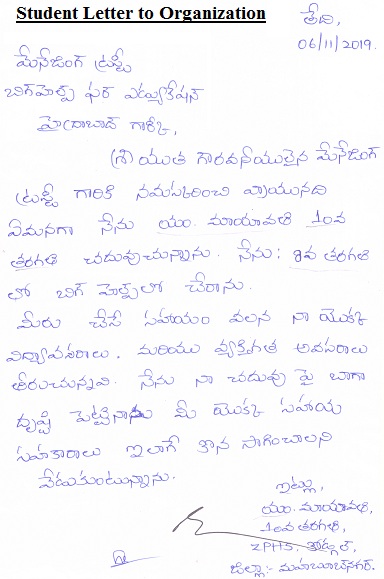 Student Letter to Organization
తేది,
06/11/2019.
మేనేజింగ్ ట్రస్టీ
బిగ్‌హెల్ప్ ఫర్ ఎడ్యుకేషన్
హైదరాబాద్ గారికి,
శ్రీయుత గౌరవనీయులైన మేనేజింగ్
ట్రస్టీ గారికి నమస్కరించి వ్రాయునది
ఏమనగా నేను యం. మాయావతి 10వ
తరగతి చదువుచున్నాను. నేను: 8వ తరగతి
లో బిగ్ హెల్ప్‌లో చేరాను.
మీరు చేసే సహాయం వలన నా యొక్క
విద్యావసరాలు. మరియు వ్యక్తిగత అవసరాలు
తీరుచున్నవి. నేను నా చదువు పై బాగా
దృష్టి పెట్టినాను మీ యొక్క సహాయ
సహకారాలు ఇలాగే కొన సాగించాలని
వేడుకుంటున్నాను.
ఇట్లు,
యం. మాయావతి,
10వ తరగతి,
ZPHS,
జిల్లా:- మహబూబ్‌నగర్.